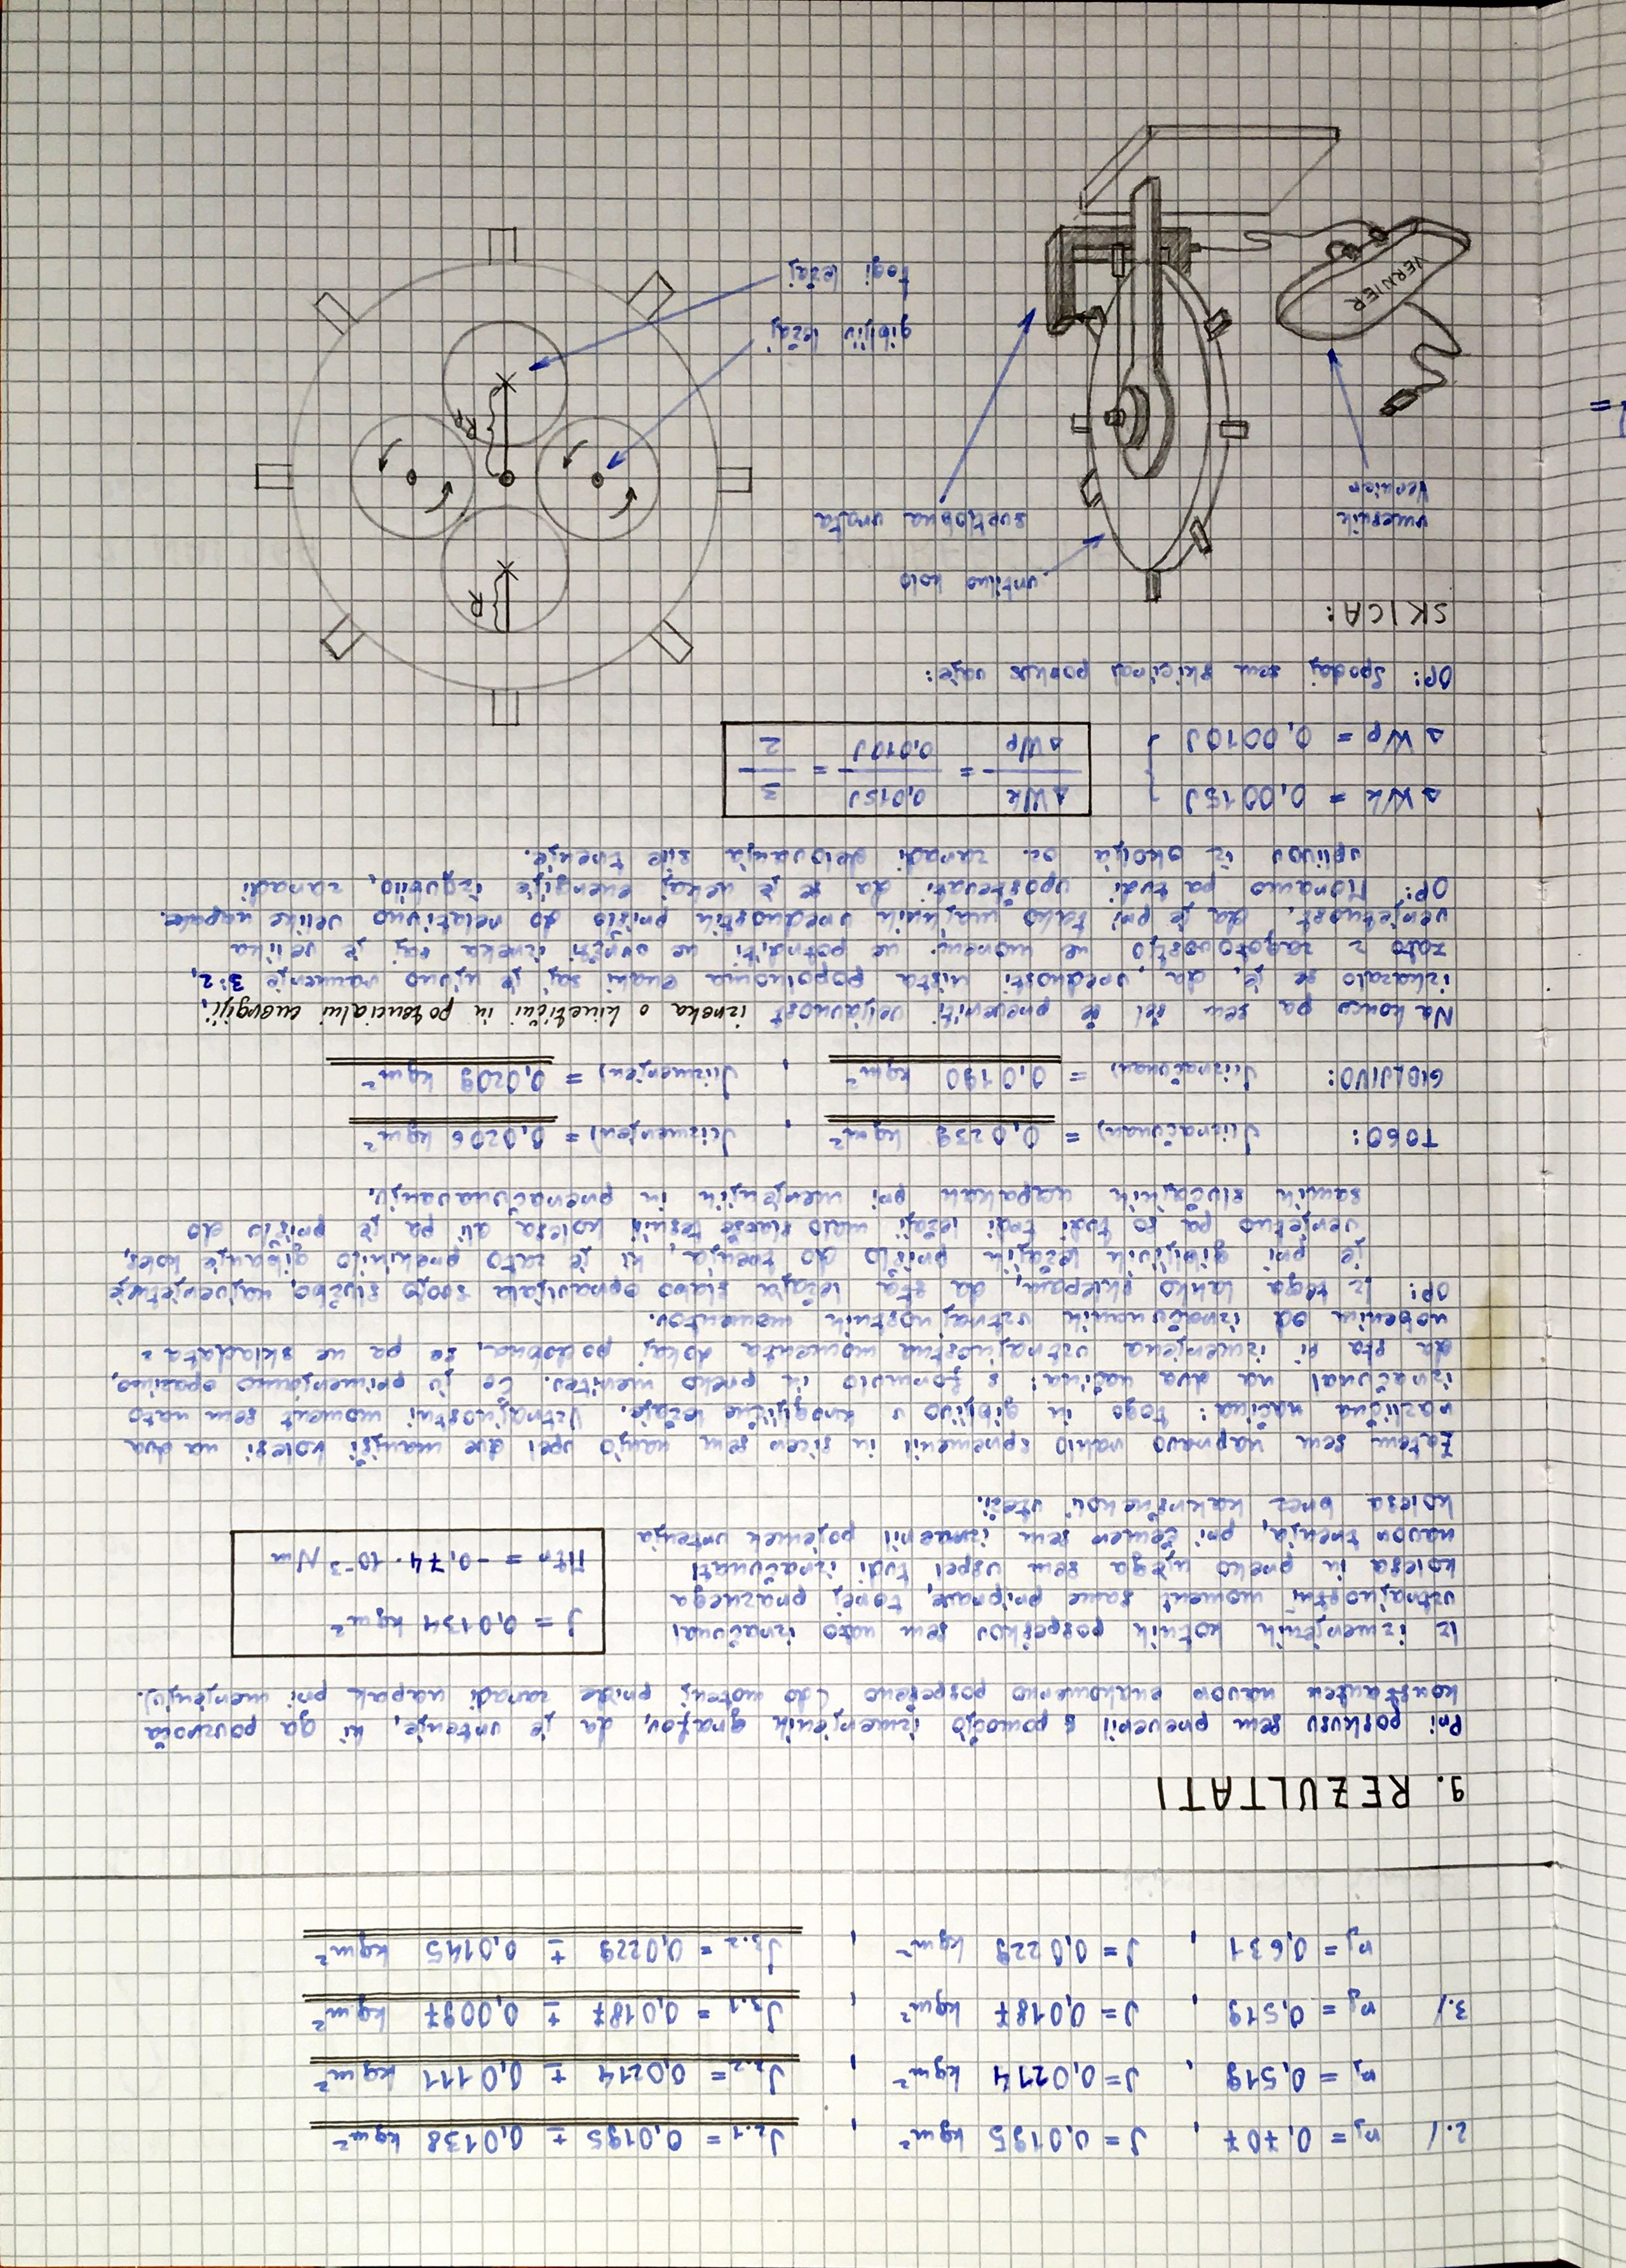 2./ rⱼ = 0,707 , J = 0,0195 kgm² , J₂.₁ = 0,0195 ± 0,0138 kgm²
rⱼ = 0,519 , J = 0,0214 kgm² , J₂.₂ = 0,0214 ± 0,0111 kgm²
3./ rⱼ = 0,519 , J = 0,0187 kgm² , J₃.₁ = 0,0187 ± 0,0097 kgm²
rⱼ = 0,631 , J = 0,0229 kgm² , J₃.₂ = 0,0229 ± 0,0145 kgm²
9. REZULTATI
Pri poskusu sem preveril s pomočjo izmerjenih grafov, da je vrtenje, ki ga povzroča
konstanten navor enakomerno pospešeno (do motenj pride zaradi napak pri merjenju).
Iz izmerjenih kotnih pospeškov sem nato izračunal
vztrajnostni moment same priprave, torej praznega
kolesa in preko njega sem uspel tudi izračunati
navor trenja, pri čemer sem izmeril pojemek vrtenja
kolesa brez kakršnekoli uteži.
J = 0,0134 kgm²
Mtr = -0,74 · 10⁻³ Nm
Zatem sem napravo rahlo spremenil in sicer sem nanjo vpel dve manjši kolesi na dva
različna načina: togo in gibljivo v kroglične ležaje. Vztrajnostni moment sem nato
izračunal na dva načina: s formulo in preko meritev. Če ju primerjamo opazimo,
da sta si izmerjena vztrajnostna momenta dokaj podobna, se pa ne skladata z
nobenim od izračunanih vztrajnostnih momentov.
OP: Iz tega lahko sklepam, da sta ležaja slabo opravljala svojo službo, najverjetneje
je pri gibljivih ležajih prišlo do trenja, ki je zato prekinilo gibanje koles,
verjetno pa so tudi togi ležaji malo slabše tesnili kolesa ali pa je prišlo do
samih slučajnih napakah pri merjenjih in preračunavanju.
TOGO: J(izračunan) = 0,0239 kgm² , J(izmerjen) = 0,0206 kgm²
GIBLJIVO: J(izračunan) = 0,0190 kgm² , J(izmerjen) = 0,0209 kgm²
Na koncu pa sem šel še preveriti veljavnost izreka o kinetični in potencialni energiji,
izkazalo se je, da vrednosti nista popolnoma enaki saj je njuno razmerje 3:2,
zato z zagotovostjo ne morem ne potrditi ne ovrči izreka saj je velika
verjetnost, da je pri tako majhnih vrednostih prišlo do relativno velike napake.
OP: Moramo pa tudi upoštevati da se je nekaj energije izgubilo, zaradi
vplivov iz okolja oz. zaradi delovanja sile trenje.
ΔWk = 0,0015J
ΔWp = 0,0010J
ΔWk / ΔWp = 0,015J / 0,010J = 3 / 2
OP: Spodaj sem skiciral poskus vaje:
SKICA:
vrtilno kolo
svetlobna vrata
vmesnik
Vernier
VERNIER
R
Rp
gibljiv ležaj
togi ležaj